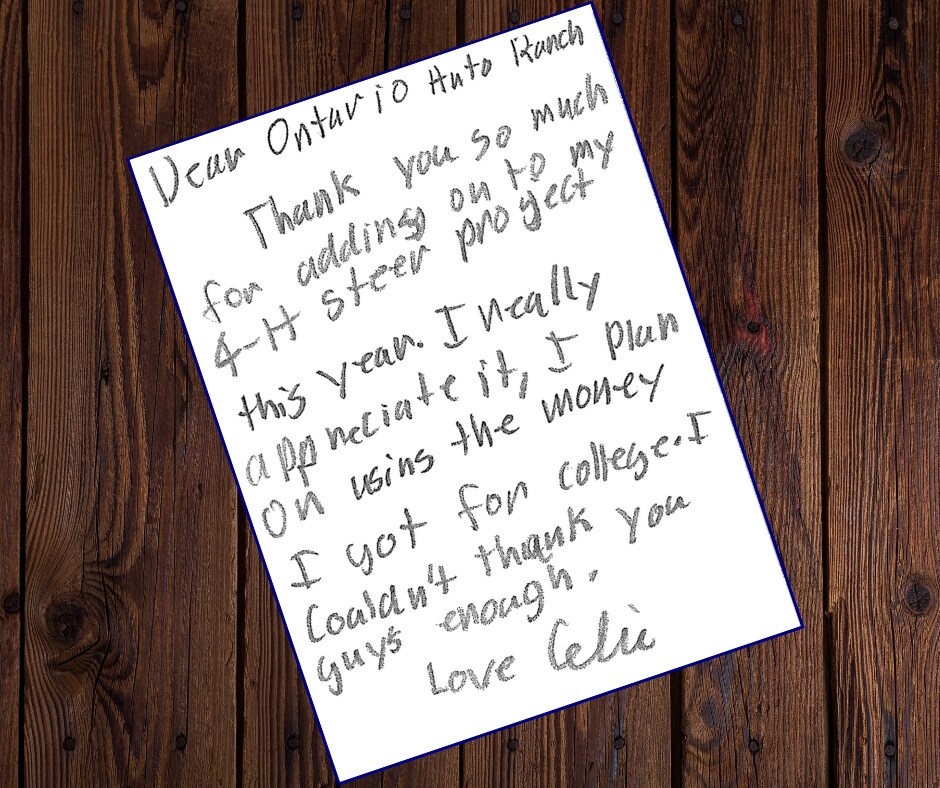 Dear Ontario Auto Ranch
Thank you so much
for adding on to my
4-H steer project
this year. I really
appreciate it, I plan
on using the money
I got for college. I
couldn't thank you
guys enough.
Love Celic